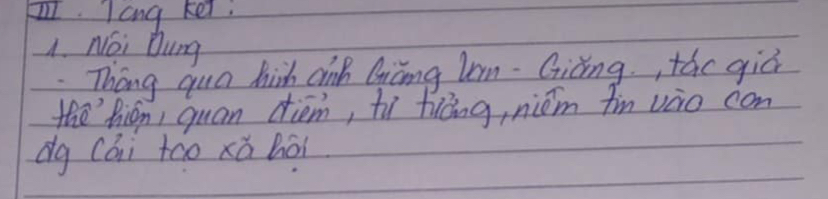 III. Tổng kết:
1. Nội Dung
- Thông qua hình ảnh Giăng Van - Giăng, tác giả
thể hiện, quan điểm, tư tưởng, niềm tin vào con
đg cải tạo xã hội.